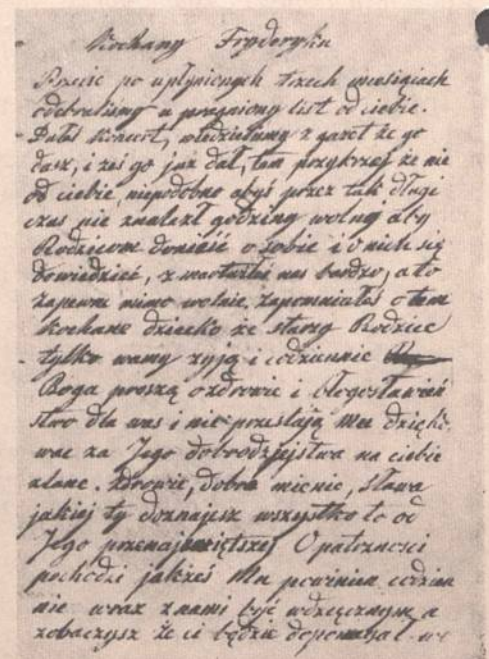 Kochany Fryderyku
Prześć po upłynionych trzech miesiącach
odebraliśmy upragniony list od ciebie.
Dałeś Koncert, wiedzielismy z gazet że go
dasz, i żeś go już dał, tem przykrzej że nie
od ciebie, niepodobna abyś przez tak długi
czas nie znalazł godziny wolnej aby
Rodzicom donieść o sobie i o nich się
dowiedzieć, zmartwiłeś nas bardzo, a to
zapewne mimo wolnie. zapomniałeś o tem
kochane dziecko że starzy Rodzice
tylko wamy żyją i codziennie
Boga proszą o zdrowie i błogosławień
stwo dla was i nie przestają Mu dzięko
wać za Jego dobrodziejstwa na ciebie
zlane. Zdrowie, dobre mienie, Sława
jakiej ty doznajesz wszystko to od
Jego przenajświętszej Opatrzności
pochodzi jakżeś Mu powinien codzien
nie wraz z nami być wdzięcznym a
zobaczysz że ci będzie dopomagał we